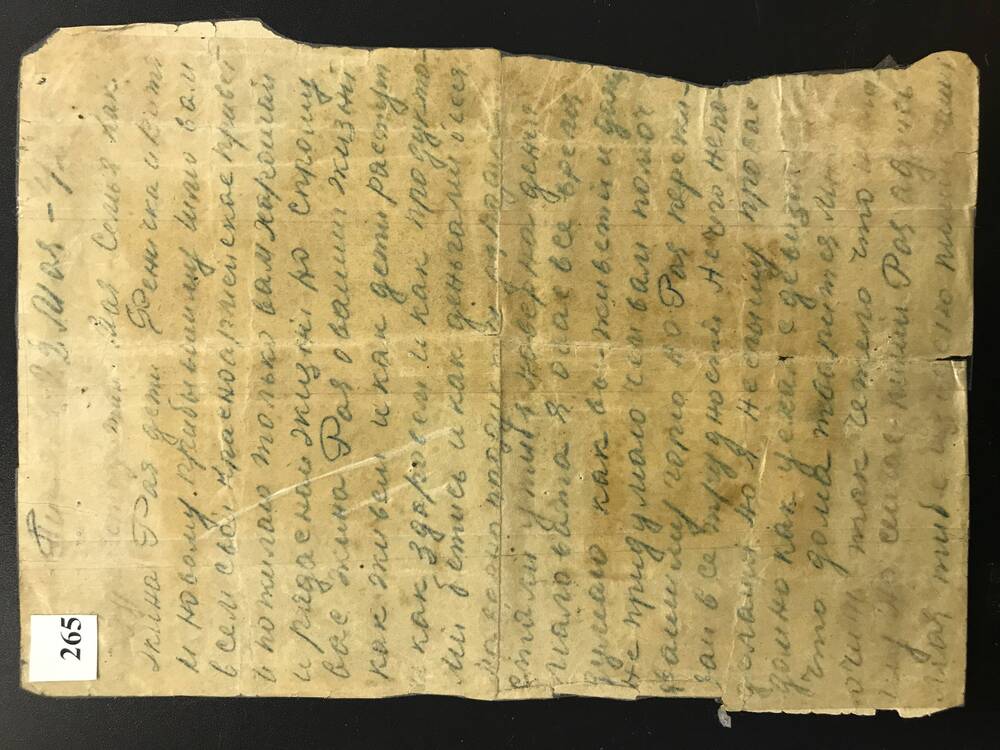 265
22 Мая - 42
Мая Семья как
жина Рая дети Феничка и Витя
и новому прибывшиму шлю вам
всем свой красноармейское привет
и пожилаю только вам харошай
и радасной жизни но спрошу
вас жина Рая о вашии жизни
как живети и как дети растут
и как здоровем и как продукта-
ми бетись и как деньгами
стали у тибя наверна денег
маловата я обас все время
думаю как вы живети и даже
не придумаю чем вам помоч
вашиму горю но Рая пережи-
вай все трудности не чиго непо-
делаиш но я неслышу провас
домно как уехал с девизи
что дома творится мне
очинь так чежело что
но сейчас пиши Рая
мая тибе пиши